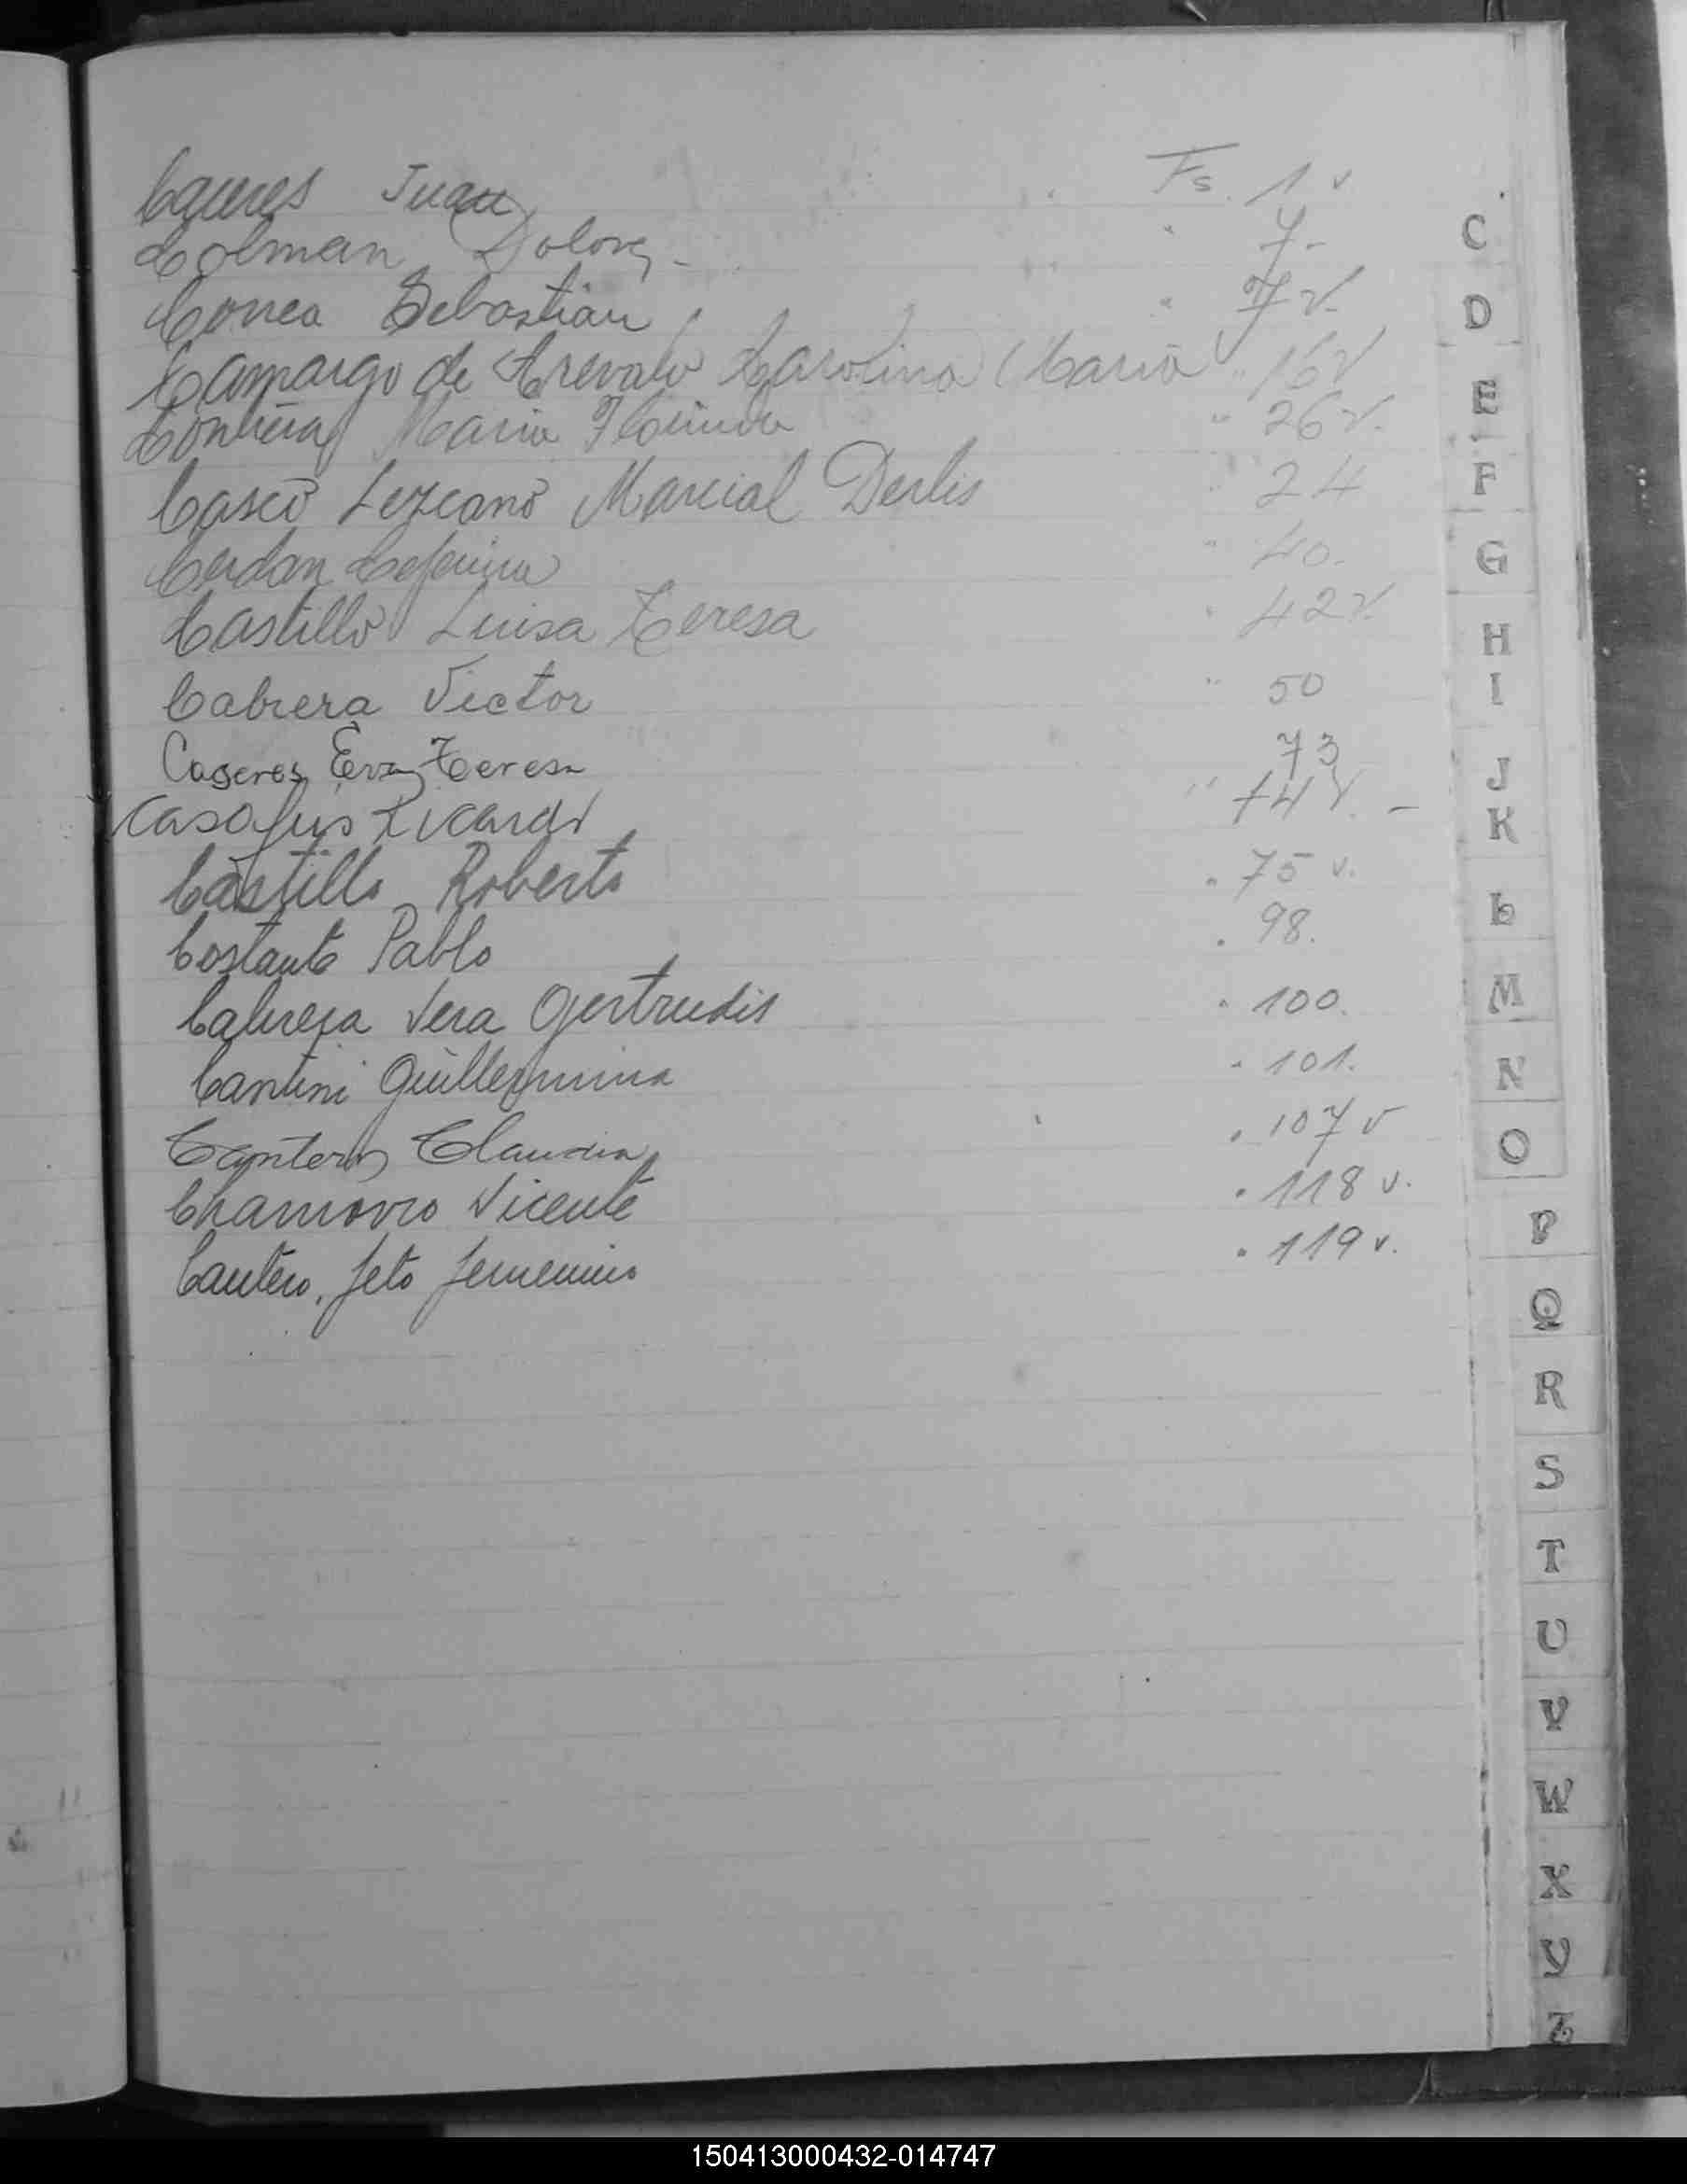 Caceres Juan Fs. 1 v
Colman Dolores - " 7-
Correa Sebastian " 7 v.
Camargo de Arevalo Carolina Maria " 16 v
Maria Florinda " 26 v.
Casco Lezcano Marcial Derlis " 24
Cerdan Ceferina " 40.
Castillo Luisa Teresa " 42 v.
Cabrera Victor " 50
Caseres Eva Teresa 73
Casafus Ricardo " 74 v. -
Castillo Roberto " 75 v.
Costante Pablo " 98.
Cabrera Vera Gertrudis " 100.
Cantini Guillermina " 101.
Canteros Claudia " 107 v
Chamorro Vicente " 118 v.
Cantero, feto femenino " 119 v.
C
D
E
F
G
H
I
J
K
L
M
N
O
P
Q
R
S
T
U
V
W
X
Y
Z
150413000432-014747